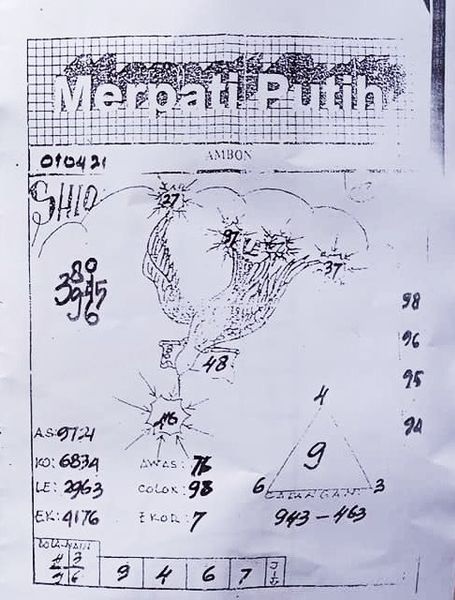 Merpati Putih
AMBON
010421
SHIO
27
97
67
37
80
3945
96
98
96
95
94
48
46
4
9
6 3
943 - 463
AS: 9724
KO: 6834
LE: 2963
EK: 4176
AWAS: 76
COLOK: 98
EKOR: 7
9 4 6 7